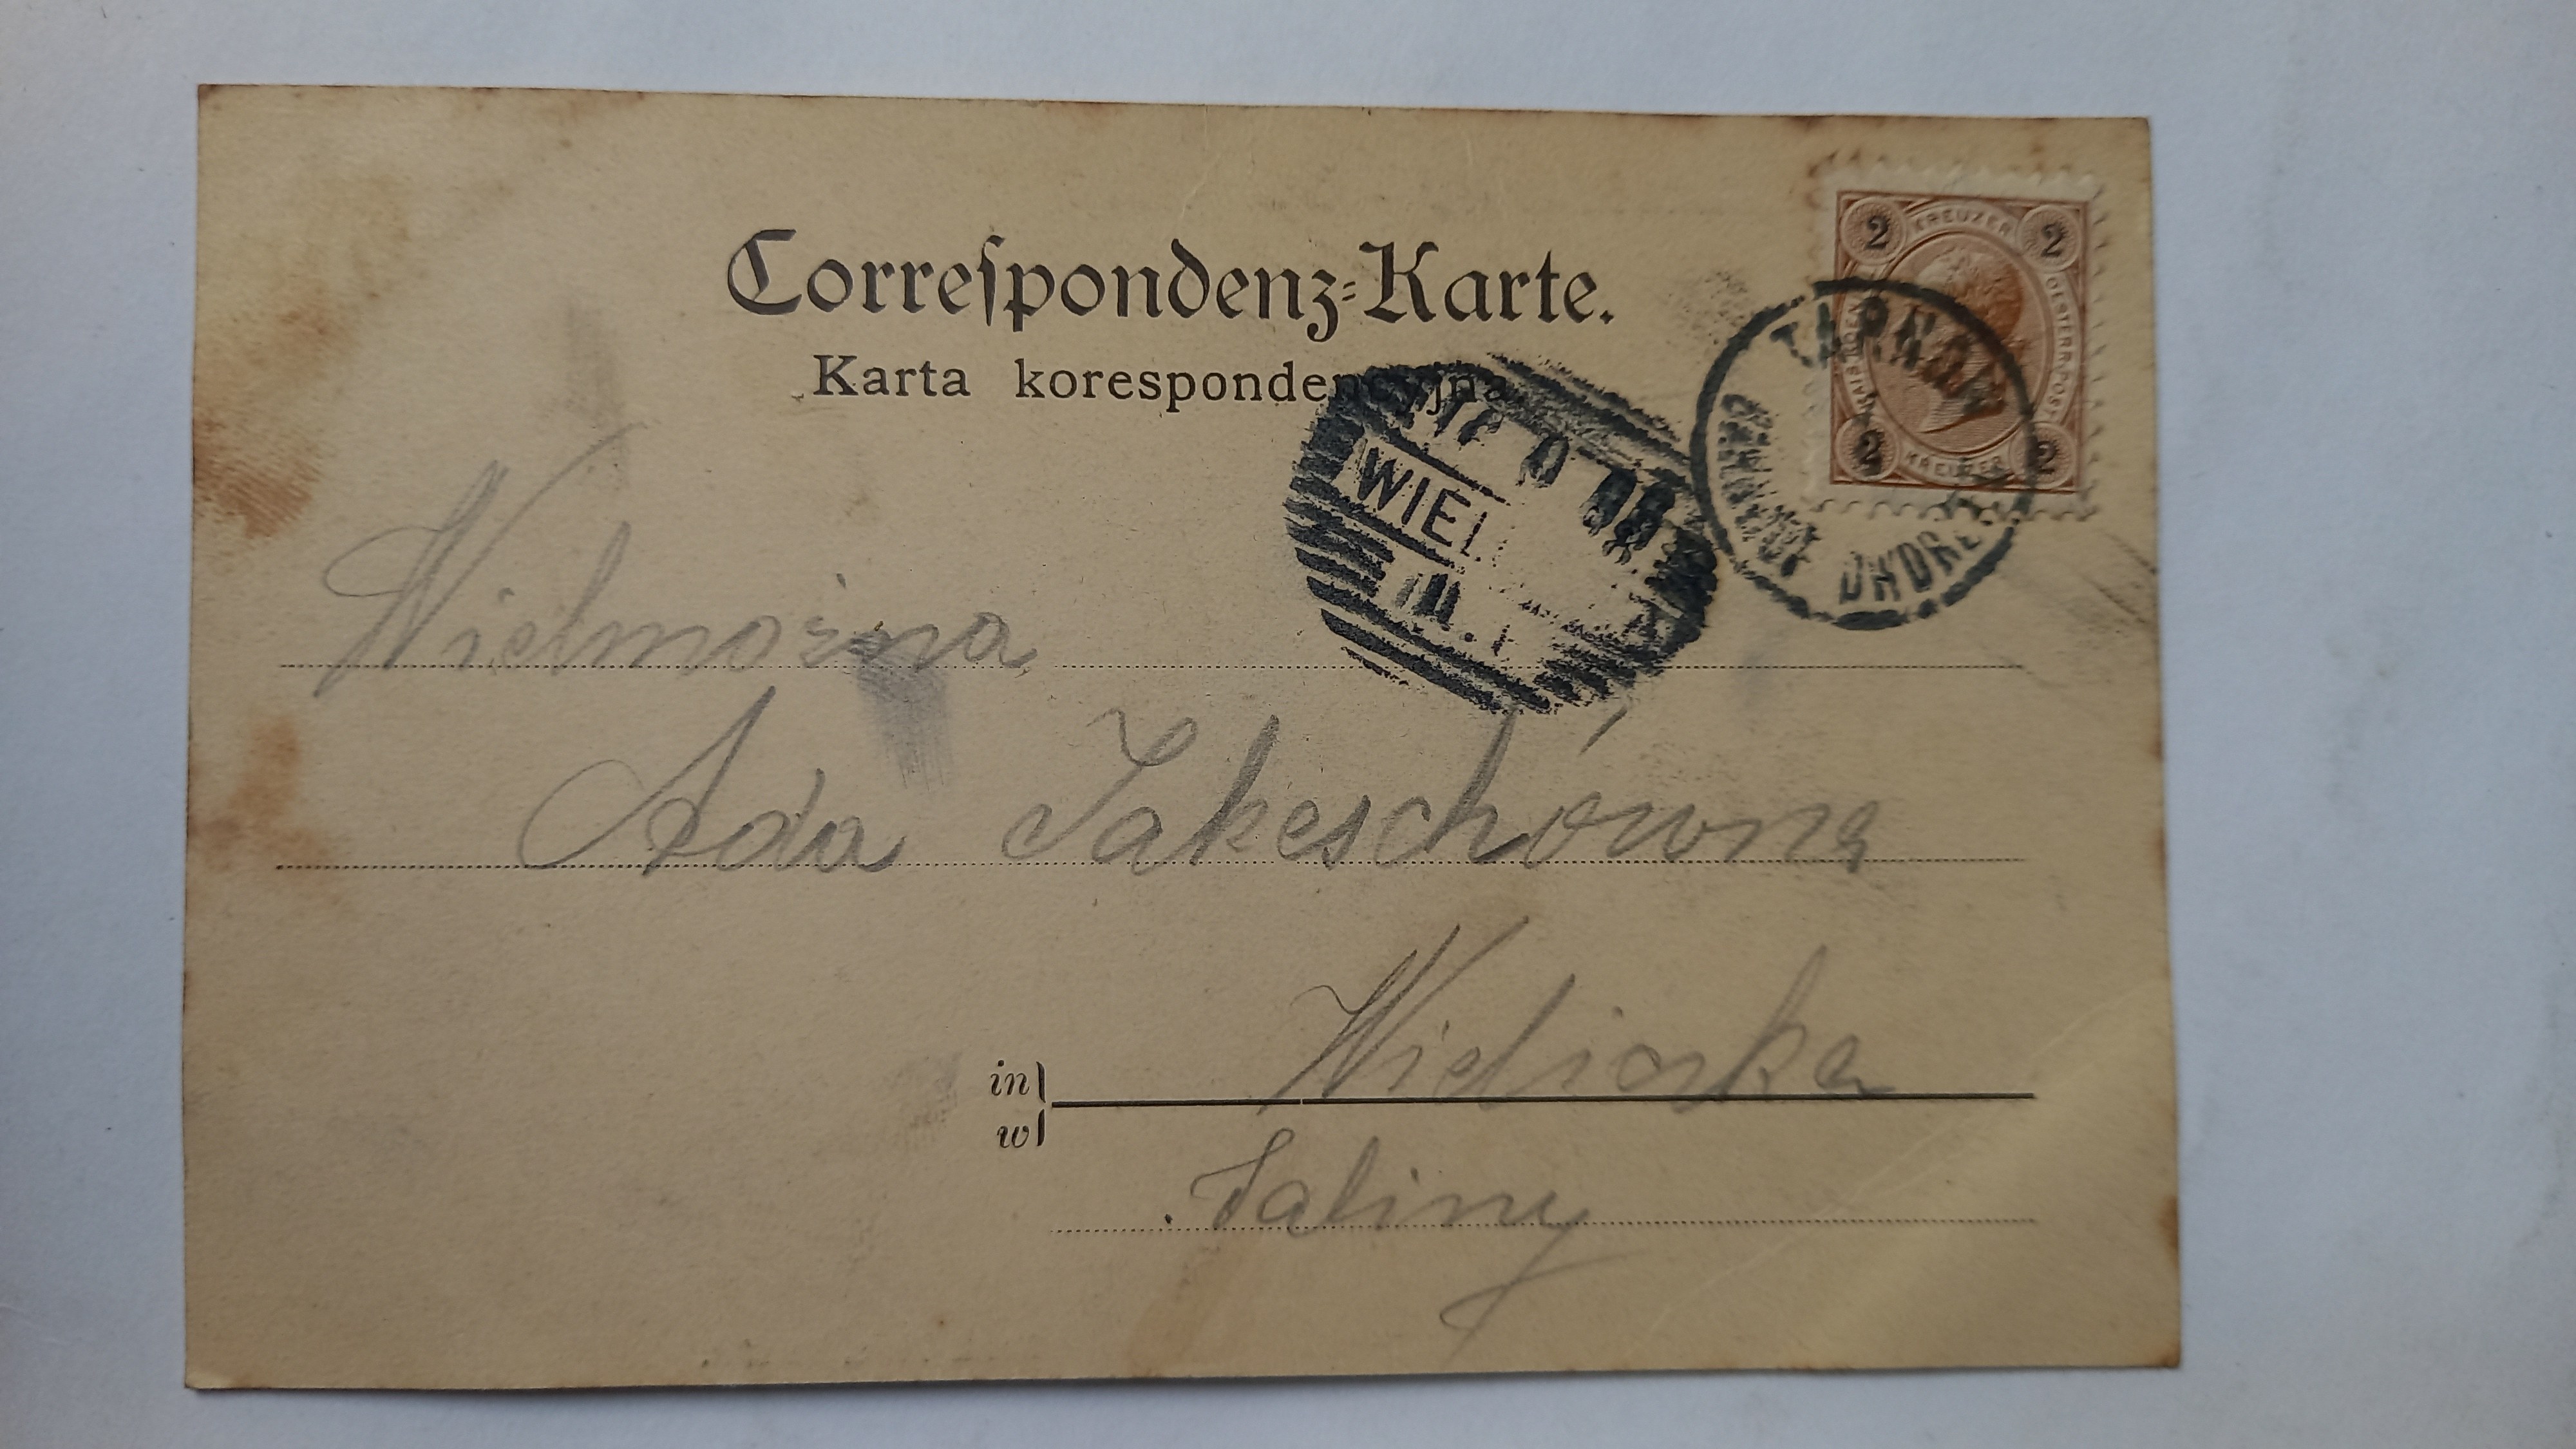 Correſpondenz-Karte.
Karta korespondencyjna.
2 KREUZER 2
2 KREUZER 2
TARNÓW
DWORZEC
WIEL
III.
Wielmożna
Ada Jakeschówna
in
w
Wieliczka
Saliny